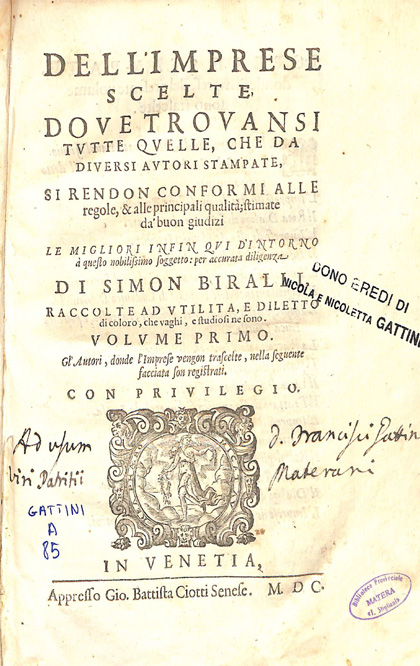 DELL'IMPRESE
SCELTE,
DOVE TROVANSI
TVTTE QVELLE, CHE DA
DIVERSI AVTORI STAMPATE,
SI RENDON CONFORMI ALLE
regole, & alle principali qualità, stimate
da' buon giudizi
LE MIGLIORI INFIN QVI D'INTORNO
à questo nobilissimo soggetto: per accurata diligenza
DI SIMON BIRALLI
RACCOLTE AD VTILITA, E DILETTO
di coloro, che vaghi, e studiosi ne sono.
VOLVME PRIMO.
Gl'Autori, donde l'Imprese vengon trascelte, nella seguente
facciata son registrati.
CON PRIVILEGIO.
DONO EREDI DI
NICOLA E NICOLETTA GATTINI
Ad usum
viri Patritii
D. Francisci Gattin
Materani
GATTINI
A
85
IN VENETIA,
Appresso Gio. Battista Ciotti Senese. M. DC.
Biblioteca Provinciale
MATERA